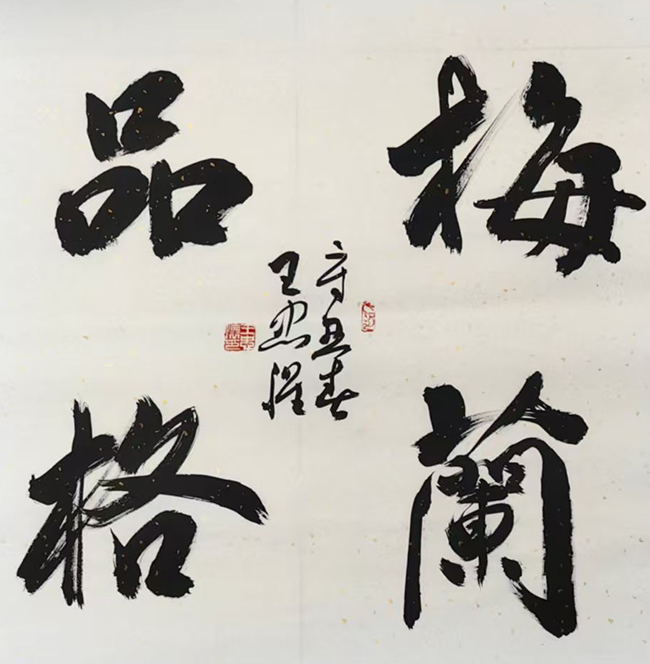 梅蘭
品格
辛丑春
王忠